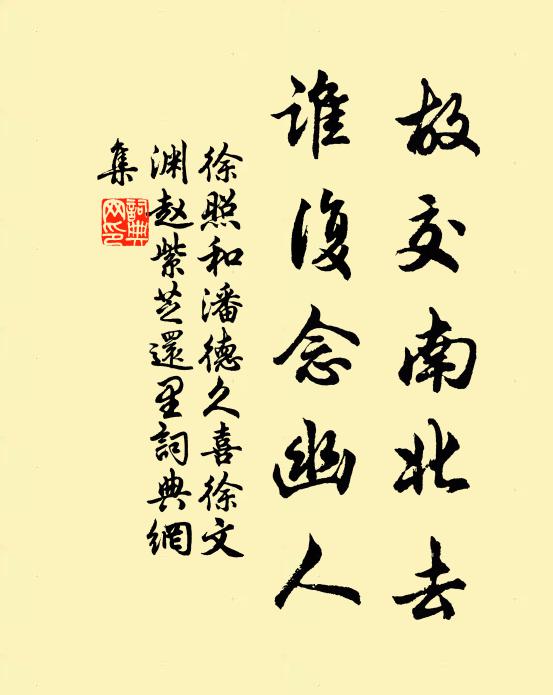 故交南北去
谁復念幽人
徐照和潘德久喜徐文
渊赵紫芝還里詞典網
集
詞典
网印